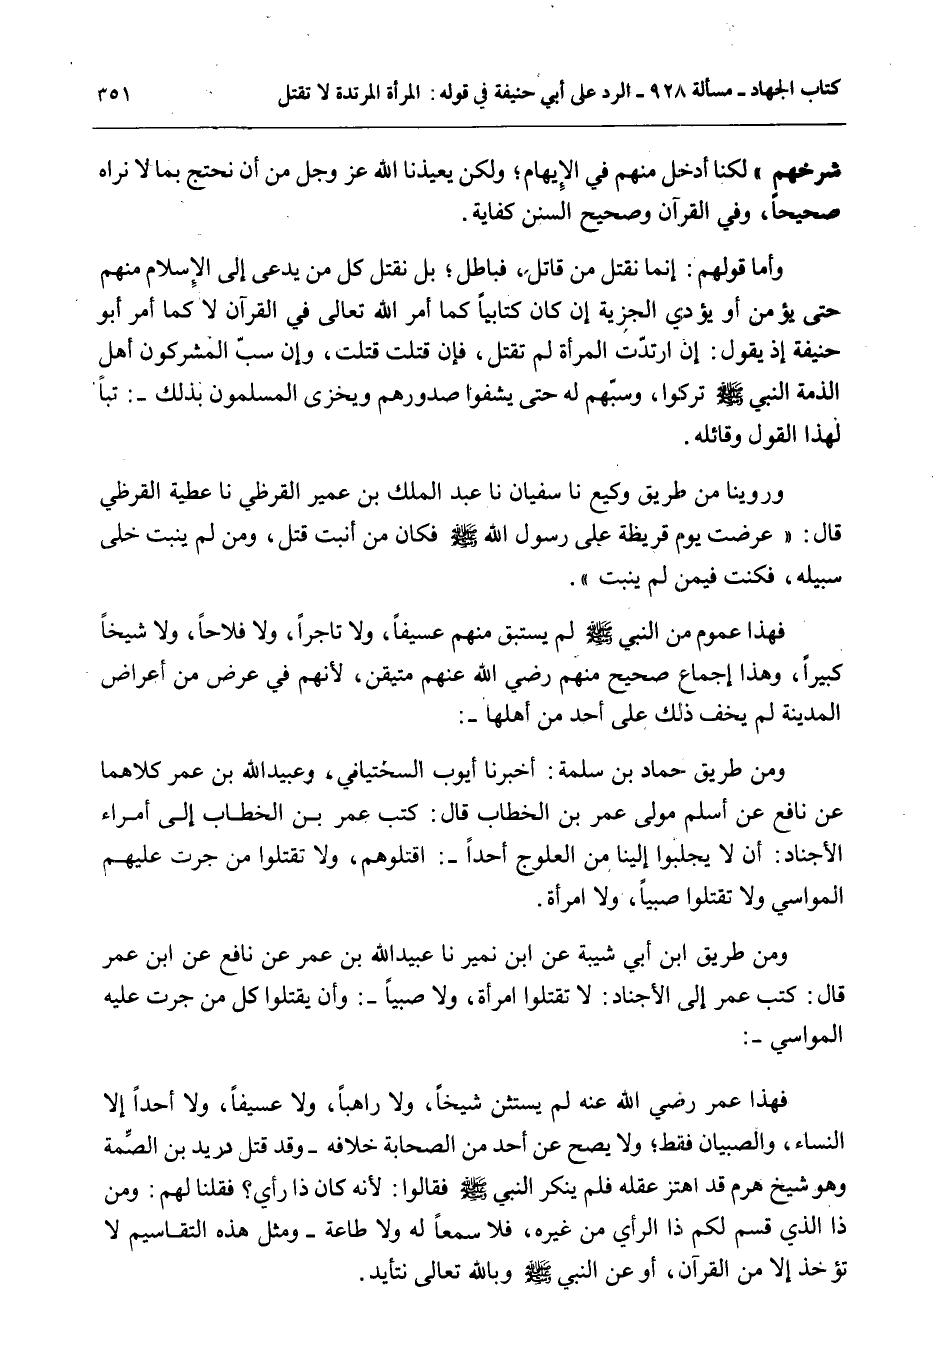 كتاب الجهاد ـ مسألة ٩٢٨ ـ الرد على أبي حنيفة في قوله: المرأة المرتدة لا تقتل ٣٥١
شرخهم » لكنا أدخل منهم في الإيهام؛ ولكن يعيذنا الله عز وجل من أن نحتج بما لا نراه
صحيحاً، وفي القرآن وصحيح السنن كفاية.
وأما قولهم: إنما نقتل من قاتل، فباطل؛ بل نقتل كل من يدعى إلى الإسلام منهم
حتى يؤمن أو يؤدي الجزية إن كان كتابياً كما أمر الله تعالى في القرآن لا كما أمر أبو
حنيفة إذ يقول: إن ارتدّت المرأة لم تقتل، فإن قتلت قتلت، وإن سبّ المشركون أهل
الذمة النبي ﷺ تركوا، وسبّهم له حتى يشفوا صدورهم ويخزى المسلمون بذلك ـ: تباً
لهذا القول وقائله.
وروينا من طريق وكيع نا سفيان نا عبد الملك بن عمير القرظي نا عطية القرظي
قال: « عرضت يوم قريظة على رسول الله ﷺ فكان من أنبت قتل، ومن لم ينبت خلى
سبيله، فكنت فيمن لم ينبت ».
فهذا عموم من النبي ﷺ لم يستبق منهم عسيفاً، ولا تاجراً، ولا فلاحاً، ولا شيخاً
كبيراً، وهذا إجماع صحيح منهم رضي الله عنهم متيقن، لأنهم في عرض من أعراض
المدينة لم يخف ذلك على أحد من أهلها ـ:
ومن طريق حماد بن سلمة: أخبرنا أيوب السختياني، وعبيدالله بن عمر كلاهما
عن نافع عن أسلم مولى عمر بن الخطاب قال: كتب عمر بن الخطاب إلى أمراء
الأجناد: أن لا يجلبوا إلينا من العلوج أحداً ـ: اقتلوهم، ولا تقتلوا من جرت عليهم
المواسي ولا تقتلوا صبياً، ولا امرأة.
ومن طريق ابن أبي شيبة عن ابن نمير نا عبيدالله بن عمر عن نافع عن ابن عمر
قال: كتب عمر إلى الأجناد: لا تقتلوا امرأة، ولا صبياً ـ: وأن يقتلوا كل من جرت عليه
المواسي ـ:
فهذا عمر رضي الله عنه لم يستثن شيخاً، ولا راهباً، ولا عسيفاً، ولا أحداً إلا
النساء، والصبيان فقط؛ ولا يصح عن أحد من الصحابة خلافه ـ وقد قتل دريد بن الصِّمة
وهو شيخ هرم قد اهتز عقله فلم ينكر النبي ﷺ فقالوا: لأنه كان ذا رأي؟ فقلنا لهم: ومن
ذا الذي قسم لكم ذا الرأي من غيره، فلا سمعاً له ولا طاعة ـ ومثل هذه التقاسيم لا
تؤخذ إلا من القرآن، أو عن النبي ﷺ وبالله تعالى نتأيد.